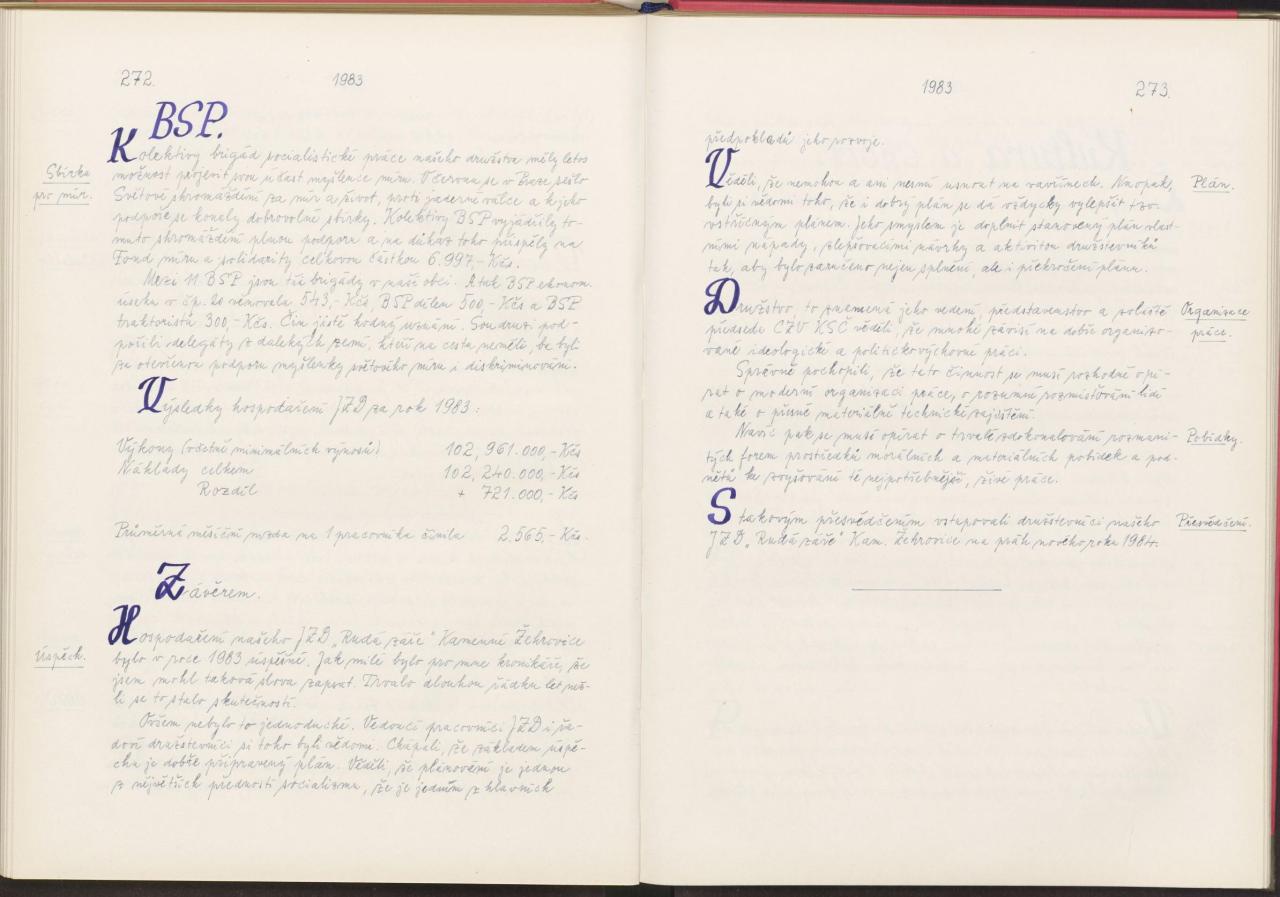 272.
1983
BSP.
Sbírka
pro mír.
Kolektivy brigád socialistické práce našeho družstva měly letos
možnost projevit svou účast myšlence míru. V červnu se v Praze sešlo
Světové shromáždění za mír a život, proti jaderné válce a k jeho
podpoře se konaly dobrovolné sbírky. Kolektivy BSP vyjádřily to-
muto shromáždění plnou podporu a na důkaz toho přispěly na
Fond míru a solidarity celkovou částkou 6.997,- Kčs.
Mezi 11 BSP jsou tři brigády v naší obci. A tak BSP ekonom.
úseku v čp. 20 věnovala 543,- Kčs, BSP dílen 500,- Kčs a BSP
traktoristů 300,- Kčs. Čin jistě hodný uznání. Soudruzi pod-
pořili i delegáty z dalekých zemí, kteří na cestu neměli, be byli
za otevřenou podporu myšlenky světového míru i diskriminováni.
Výsledky hospodaření JZD za rok 1983:
Výkony (včetně minimálních výnosů) 102,961.000,- Kčs
Náklady celkem 102,240.000,- Kčs
Rozdíl + 721.000,- Kčs
Průměrná měsíční mzda na 1 pracovníka činila 2.565,- Kčs.
Závěrem.
Úspěch.
Hospodaření našeho JZD „Rudá záře" Kamenné Žehrovice
bylo v roce 1983 úspěšné. Jak milé bylo pro mne kronikáře, že
jsem mohl taková slova zapsat. Trvalo dlouhou řádku let než-
li se to stalo skutečností.
Ovšem nebylo to jednoduché. Vedoucí pracovníci JZD i řa-
doví družstevníci si toho byli vědomi. Chápali, že základem úspě-
chu je dobře připravený plán. Věděli, že plánování je jednou
z největších předností socialismu, že je jedním z hlavních
1983
273.
předpokladů jeho rozvoje.
Plán.
Věděli, že nemohou a ani nesmí usnout na vavřínech. Naopak,
byli si vědomi toho, že i dobrý plán se dá vždycky vylepšit tzv.
vstřícným plánem. Jeho smyslem je doplnit stanovený plán vlast-
ními nápady, zlepšovacími návrhy a aktivitou družstevníků
tak, aby bylo zaručeno nejen splnění, ale i překročení plánu.
Organizace
práce.
Družstvo, to znamená jeho vedení, představenstvo a zvláště
předseda CZV KSČ věděli, že mnohé závisí na dobře organizo-
vané ideologické a politickovýchovné práci.
Správně pochopili, že tato činnost se musí rozhodně opí-
rat o moderní organizaci práce, o rozumné rozmisťování lidí
a také o přesné materiálně technické zajištění.
Pobídky.
Navíc pak se musí opírat o trvalé zdokonalování rozmani-
tých forem prostředků morálních a materiálních pobídek a pod-
nětů ke zvyšování té nejpotřebnější, živé práce.
Přesvědčení.
S takovým přesvědčením vstupovali družstevníci našeho
JZD „Rudá záře" Kam. Žehrovice na práh nového roku 1984.